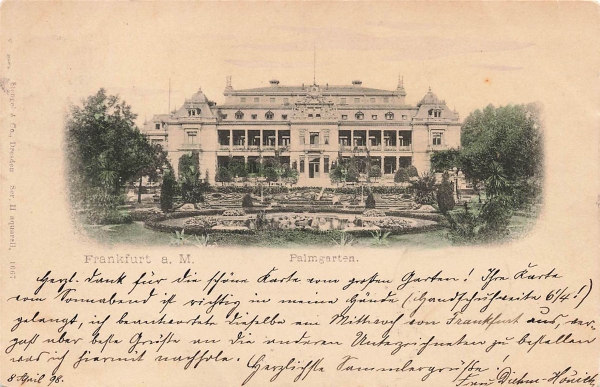 Stengel & Co., Dresden Ser. II aquarell, 1667
Frankfurt a. M. Palmgarten.
Herzl. Dank für die schöne Karte vom großen Garten! Ihre Karte
vom Sonnabend ist richtig in meine Hände (Handschuhweite 6¼!)
gelangt, ich beantwortete dieselbe am Mittwoch von Frankfurt aus, ver-
gaß aber beste Grüße an die anderen Unterzeichneten zu bestellen
was ich hiermit nachhole. Herzlichste Sammlergrüße!
8 April 98. Frau